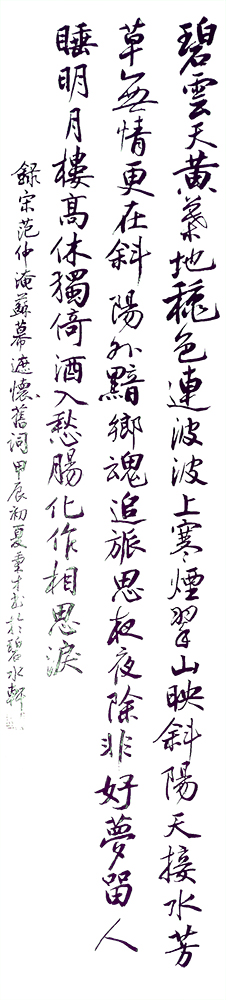 碧雲天黃葉地穐色連波波上寒煙翠山映斜陽天接水芳
草無情更在斜陽外黯鄉魂追旅思夜夜除非好夢留人
睡明月樓高休獨倚酒入愁腸化作相思淚
錄宋范仲淹蘇幕遮懷舊詞甲辰初夏東才書於碧水軒